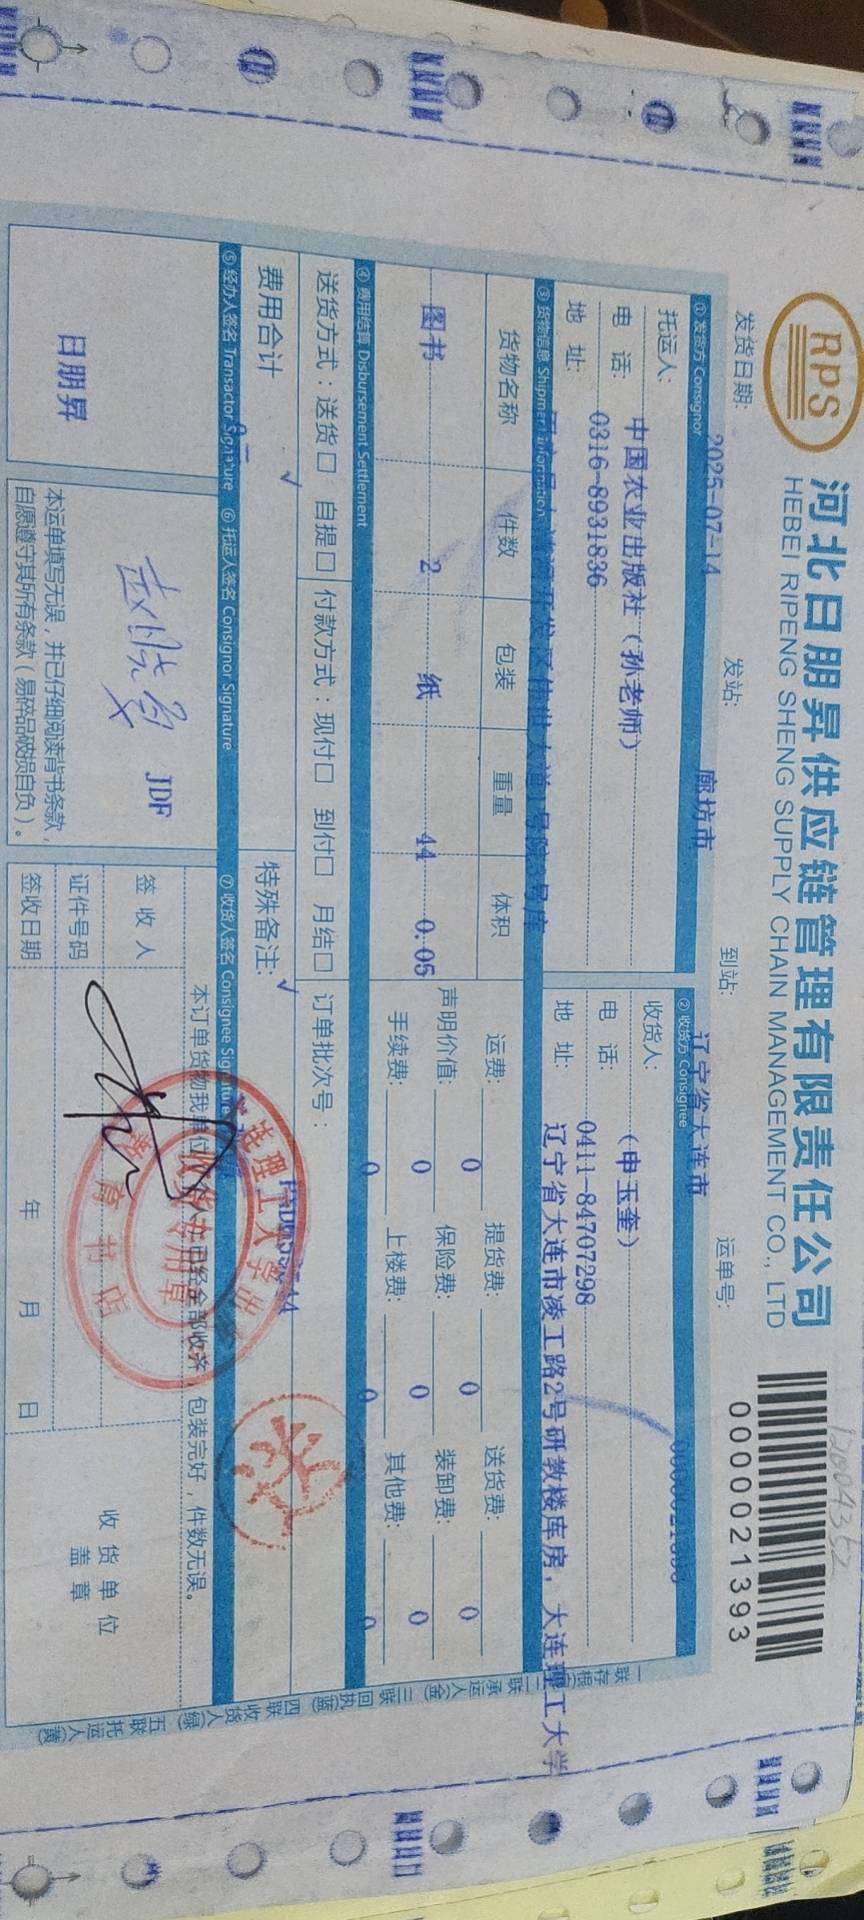 RPS
河北日朋昇供应链管理有限责任公司
HEBEI RIPENG SHENG SUPPLY CHAIN MANAGEMENT CO., LTD
12004352
0000021393
发货日期: 2025-07-14 发站: 廊坊市 到站: 辽宁省大连市 运单号: 0000021393
① 发货方 Consignor
② 收货方 Consignee
托运人: 中国农业出版社（孙老师）
收货人: （申玉奎）
电 话: 0316-8931836
电 话: 0411-84707298
地 址:
地 址: 辽宁省大连市凌工路2号研教楼库房，大连理工大学
③ 货物信息 Shipment Information
货物名称 件数 包装 重量 体积
图书 2 纸 44 0.05
运费: 0 提货费: 0 送货费: 0
声明价值: 0 保险费: 0 装卸费: 0
手续费: 0 上楼费: 0 其他费: 0
④ 费用结算 Disbursement Settlement
送货方式：送货□ 自提□ √
付款方式：现付□ 到付□ 月结□ √
订单批次号：
费用合计
特殊备注:
⑤ 经办人签名 Transactor Signature
⑥ 托运人签名 Consignor Signature
⑦ 收货人签名 Consignee Signature
日朋昇
JDF
本运单填写无误，并已仔细阅读背书条款，
自愿遵守其所有条款（易碎品破损自负）。
本订单货物我单位收货人在已经全部收齐，包装完好，件数无误。
签收人
证件号码
签收日期 年 月 日
收货单位
盖章
理工大学出
教育书店
收货专用章
一联存根() 二联承运人(金) 三联回执(蓝) 四联收货人(绿) 五联托运人(黄)